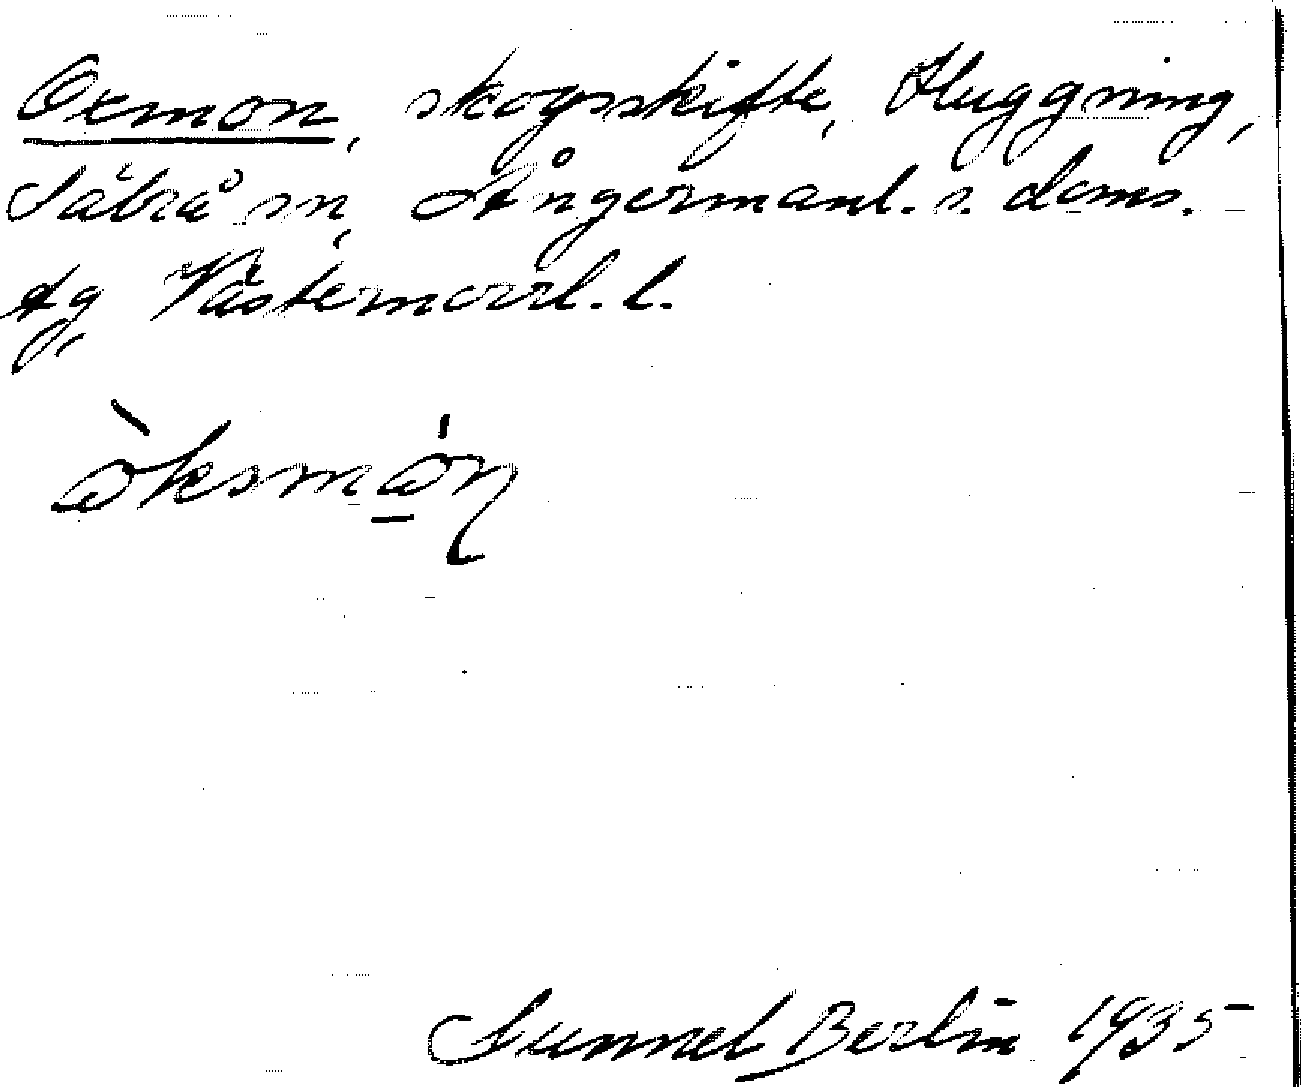 Oxmon, skogsskifte, Huggning,
Säbrå sn, Ångermanl. s. doms.
sg, Västernorrl. l.
òksmo̱n
Gunnel Berlin 1935